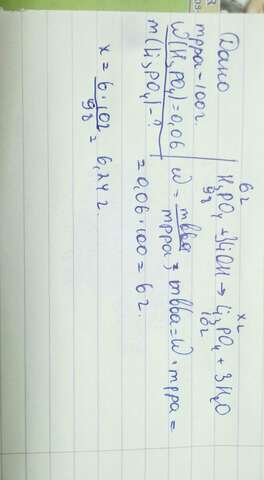 Дано
mрра = 100 г.
W(H₃PO₄) = 0,06
m(Li₃PO₄) - ?
6 г x г
H₃PO₄ + 3LiOH → Li₃PO₄ + 3H₂O
98
W = mвва / mрра ; mвва = W · mрра =
= 0,06 · 100 = 6 г.
x = 6 · 102 / 98 = 6,24 г.